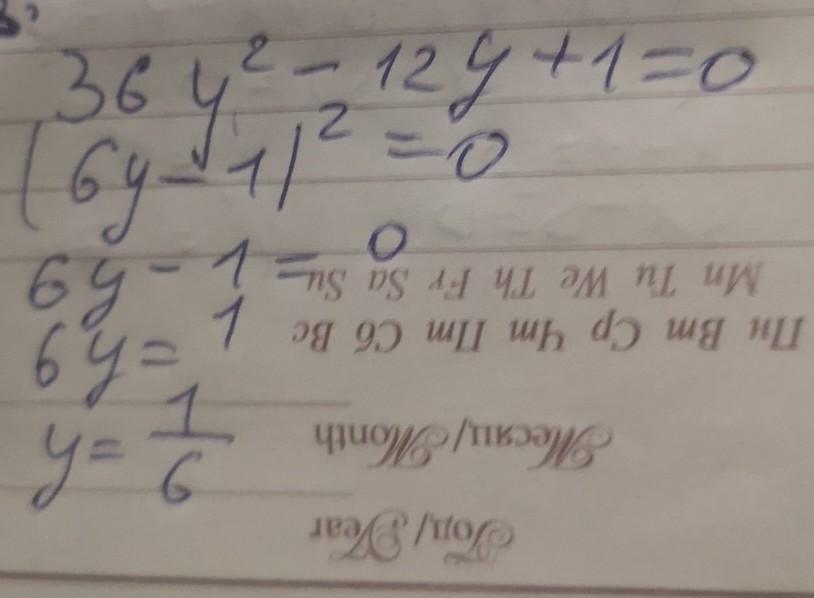 36y² - 12y + 1 = 0
(6y - 1)² = 0
6y - 1 = 0
6y = 1
y = 1/6
Mn Tu We Th Fr Sa Su
Пн Вт Ср Чт Пт Сб Вс
Месяц/Month
Год/Year